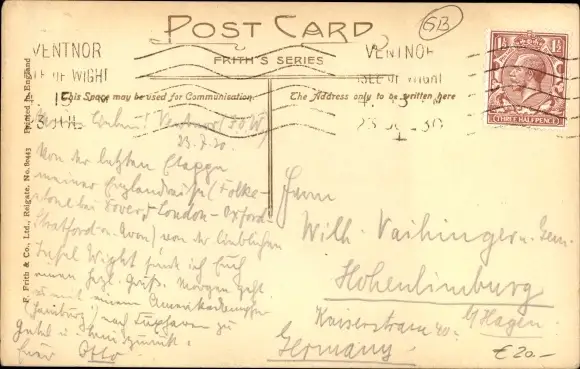 POST CARD
GB
FRITH'S SERIES
VENTNOR
ISLE OF WIGHT
VENTNOR
ISLE OF WIGHT
This Space may be used for Communication.
The Address only to be written here
1½ 1½
THREE HALFPENCE
F. Frith & Co., Ltd., Reigate. No. Printed in England
Ventnor (IOW)
23.7.30.
Von der letzten Etappe
meiner Englandreise (Folke-
stone bei Dover, London-Oxford-
Stratford a. Avon) von der lieblichen
Insel Wight sende ich Euch
einen herzl. Gruß. Morgen geht
es mit einem Amerikadampfer
(Hamburg) nach Cuxhaven zu
zurück.
Euer Otto
Herrn
Wilh. Vaihinger u. Gem.
Hohenlimburg
b/Hagen
Kaiserstrasse 40.
Germany.
€ 20.-